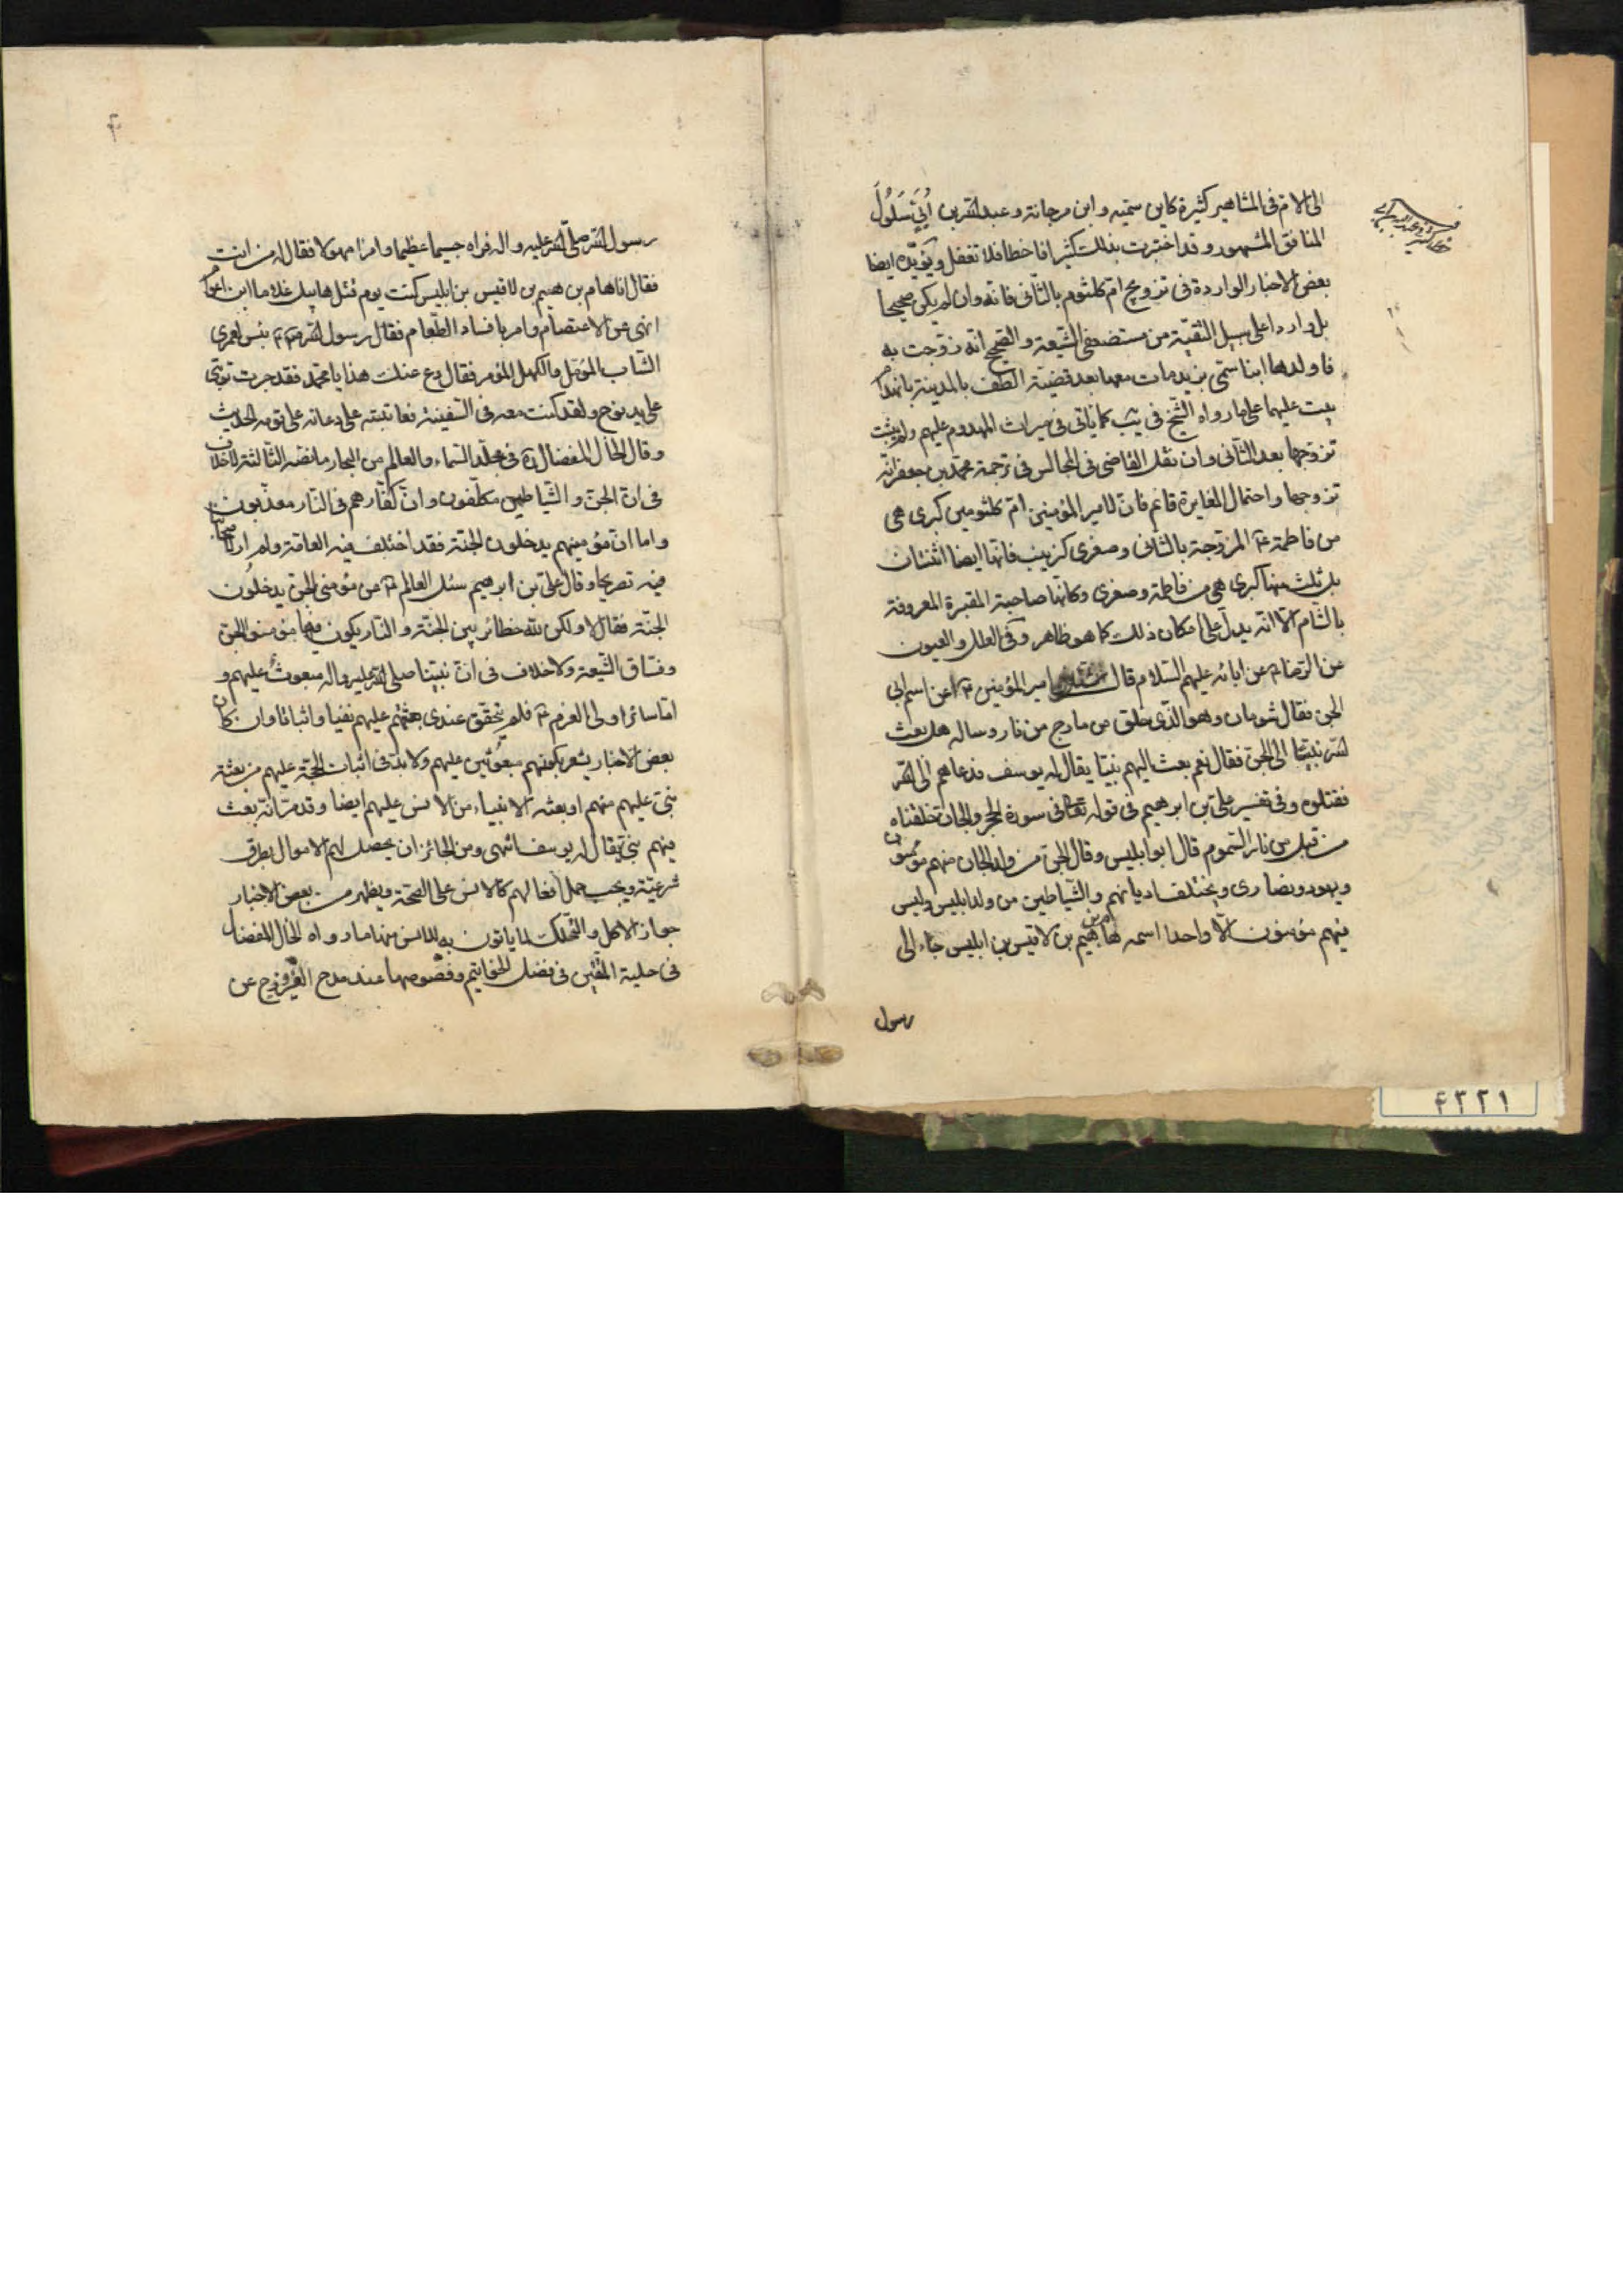 الى الام فى المشاهير كثيرة كابن سميه و ابن مرجانة و عبد الله بن اُبَيّ سَلُولَ
المنافق المشهور و قد اختبرت بذلك كثيرا فاخطا فلا تغفل و يؤيده ايضا
بعض الاخبار الواردة فى تزويج ام كلثوم بالثانى فانه و ان لم يكن صحيحا
بل واردا على سبيل التقية من مستضعفى الشيعة و الصحيح انه زوجت به
فاولدها ابنا سمى بزيد مات معها بعد قضية الطف بالمدينة بانهدام
بيت عليهما على ما رواه الشيخ فى يب كما ياتى فى ميراث المهدوم عليهم و لم يثبت
تزوجها بعد الثانى و ان نقل القاضى فى المجالس فى ترجمة محمد بن جعفر انه
تزوجها و احتمال المغايرة قائم فان لامير المؤمنين ام كلثومين كبرى هى
من فاطمة ع المزوجة بالثانى و صغرى كزينب فانها ايضا اثنتان
بل ثلث منها كبرى هى من فاطمة و صغرى و كانها صاحبة المقبرة المعروفة
بالشام الا انه يدل على امكان ذلك كما هو ظاهر و فى العلل و العيون
عن الرضا ع عن ابائه عليهم السلام قال امير المؤمنين ع عن اسم ابى
الجن فقال شومان و هو الذى خلق من مارج من نار و ساله هل بعث
الله نبيا الى الجن فقال نعم بعث اليهم نبيا يقال له يوسف فدعاهم الى الله
فقتلوه و فى تفسير على بن ابرهيم فى قوله تعالى فى سورة الحجر و الجان خلقناه
من قبل من نار السموم قال ابو ابليس و قال الجن من ولد الجان منهم مؤمنون
و يهود و نصارى و يختلف اديانهم و الشياطين من ولد ابليس و ليس
فيهم مؤمنون الا واحدا اسمه هام بن هيم بن لاقيس بن ابليس جاء الى
رسول
رسول الله صلى الله عليه و اله فراه جسيما عظيما و امرا مهولا فقال له من انت
فقال انا هام بن هيم بن لاقيس بن ابليس كنت يوم قتل هابيل غلاما ابن اعوام
انهى عن الاعتصام و امر بافساد الطعام فقال رسول الله ص بئس لعمرى
الشاب المؤمل و الكهل المؤمر فقال دع عنك هذا يا محمد فقد جرت توبتى
على يد نوح و لقد كنت معه فى السفينة فعاتبته على دعائه على قومه الحديث
و قال الخال المفضال فى مجلد السماء و العالم من البحار ما نصه الثالثة لا خلاف
فى ان الجن و الشياطين مكلفون و ان كفارهم فى النار معذبون
و اما ان مؤمنيهم يدخلون الجنة فقد اختلف فيه العامة و لم ار لاصحابنا
فيه تصريحا و قال على بن ابرهيم سئل العالم ع من مؤمنى الجن يدخلون
الجنة فقال لا و لكن لله حظائر بين الجنة و النار يكون فيها مؤمنو الجن
و فساق الشيعة و لا خلاف فى ان نبينا صلى الله عليه و اله مبعوث عليهم و
اما سائر اولى العزم ع فلم يتحقق عندى بعثتهم عليهم نفيا و اثباتا و ان كان
بعض الاخبار يشعر بكونهم مبعوثين عليهم و لا بد فى اثبات الحجة عليهم من بعثة
نبى عليهم منهم او بعثه الانبياء من الانس عليهم ايضا و قد مر انه بعث
فيهم نبى يقال له يوسف انتهى و من الجائز ان يحصل لهم الاموال بطرق
شرعية و يجب حمل افعالهم كالانس على الصحة و يظهر من بعض الاخبار
جواز الاكل و التملك لما ياتون به للانس منها ما رواه الخال المفضال
فى حلية المتقين فى فضل الخواتيم و فصوصها عند مدح الفيروزج عن
۴۳۲۱